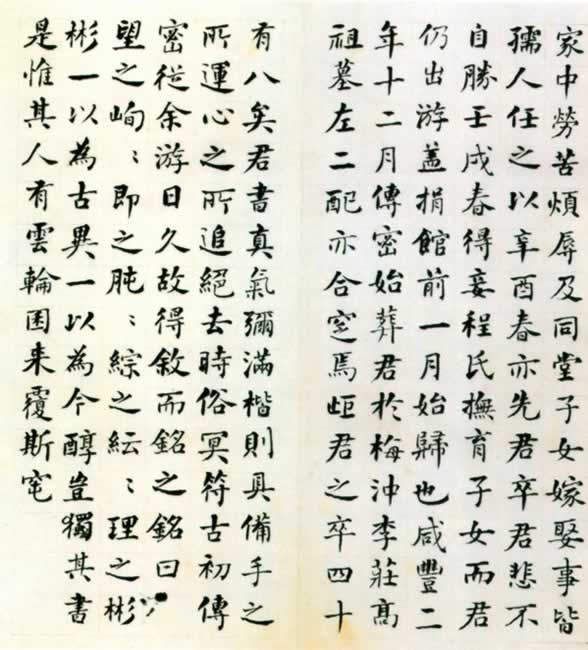 家中勞苦煩辱及同堂子女嫁娶事皆
孺人任之以辛酉春亦先君卒君悲不
自勝壬戌春得妾程氏撫育子女而君
仍出游蓋捐館前一月始歸也咸豐二
年十二月傳密始葬君於梅沖李莊高
祖墓左二配亦合窆焉歫君之卒四十
有八矣君書真氣彌滿楷則具備手之
所運心之所追絕去時俗冥符古初傳
密從余游日久故得敘而銘之銘曰
望之峋〻即之肫〻綜之紜〻理之彬
彬一以為古異一以為今醇豈獨其書
是惟其人有雲輪囷来覆斯窀